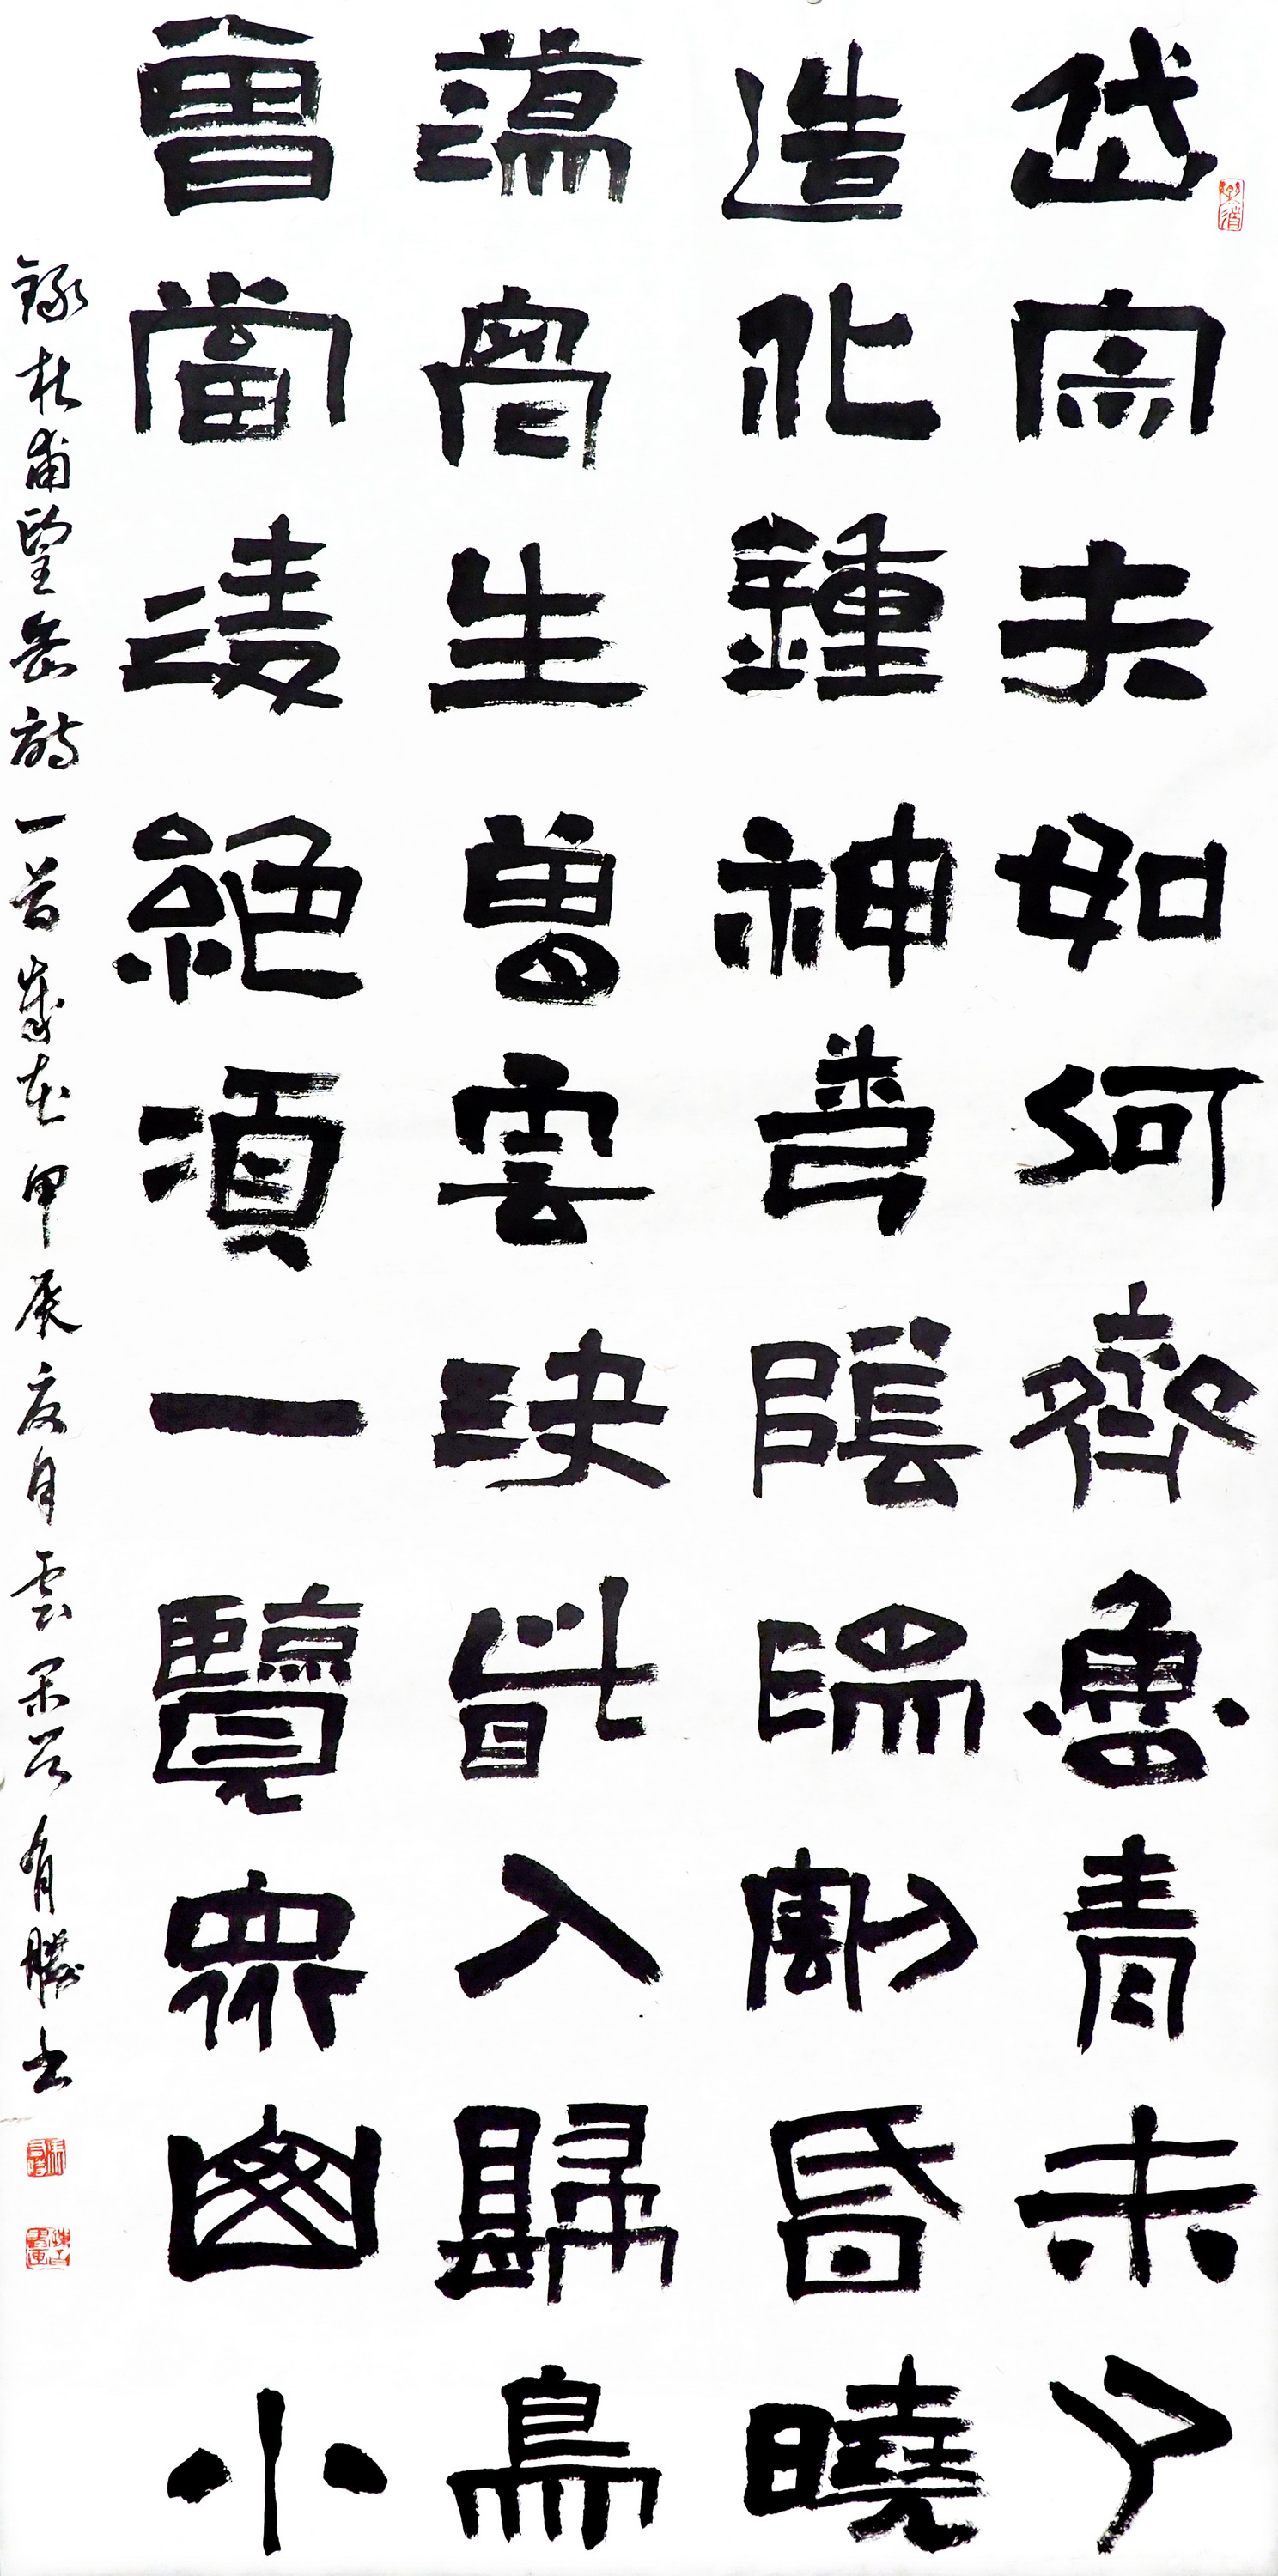 岱宗夫如何齊魯青未了
造化鍾神秀陰陽割昏曉
蕩胷生曾雲决眥入歸鳥
會當凌絕頂一覽眾山小
錄杜甫望岳詩一首歲在甲辰夏月雲有勝书